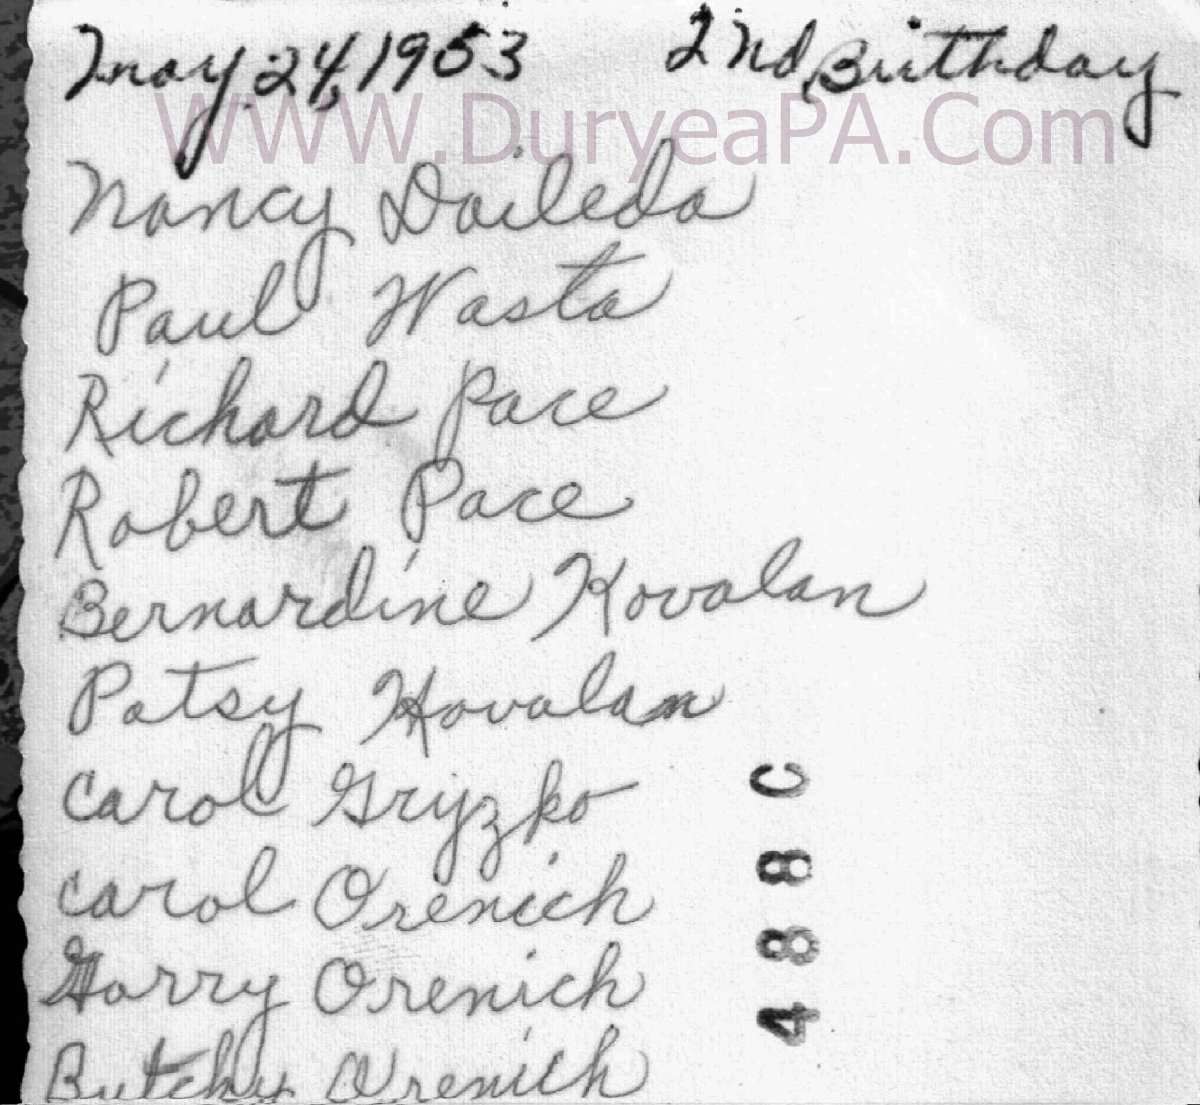 May 24, 1953 2nd Birthday
WWW.DuryeaPA.Com
Nancy Daileda
Paul Wasta
Richard Pace
Robert Pace
Bernardine Kovalan
Patsy Kovalan
Carol Gryzko
Carol Orenich
Garry Orenich
Butchy Orenich
488C